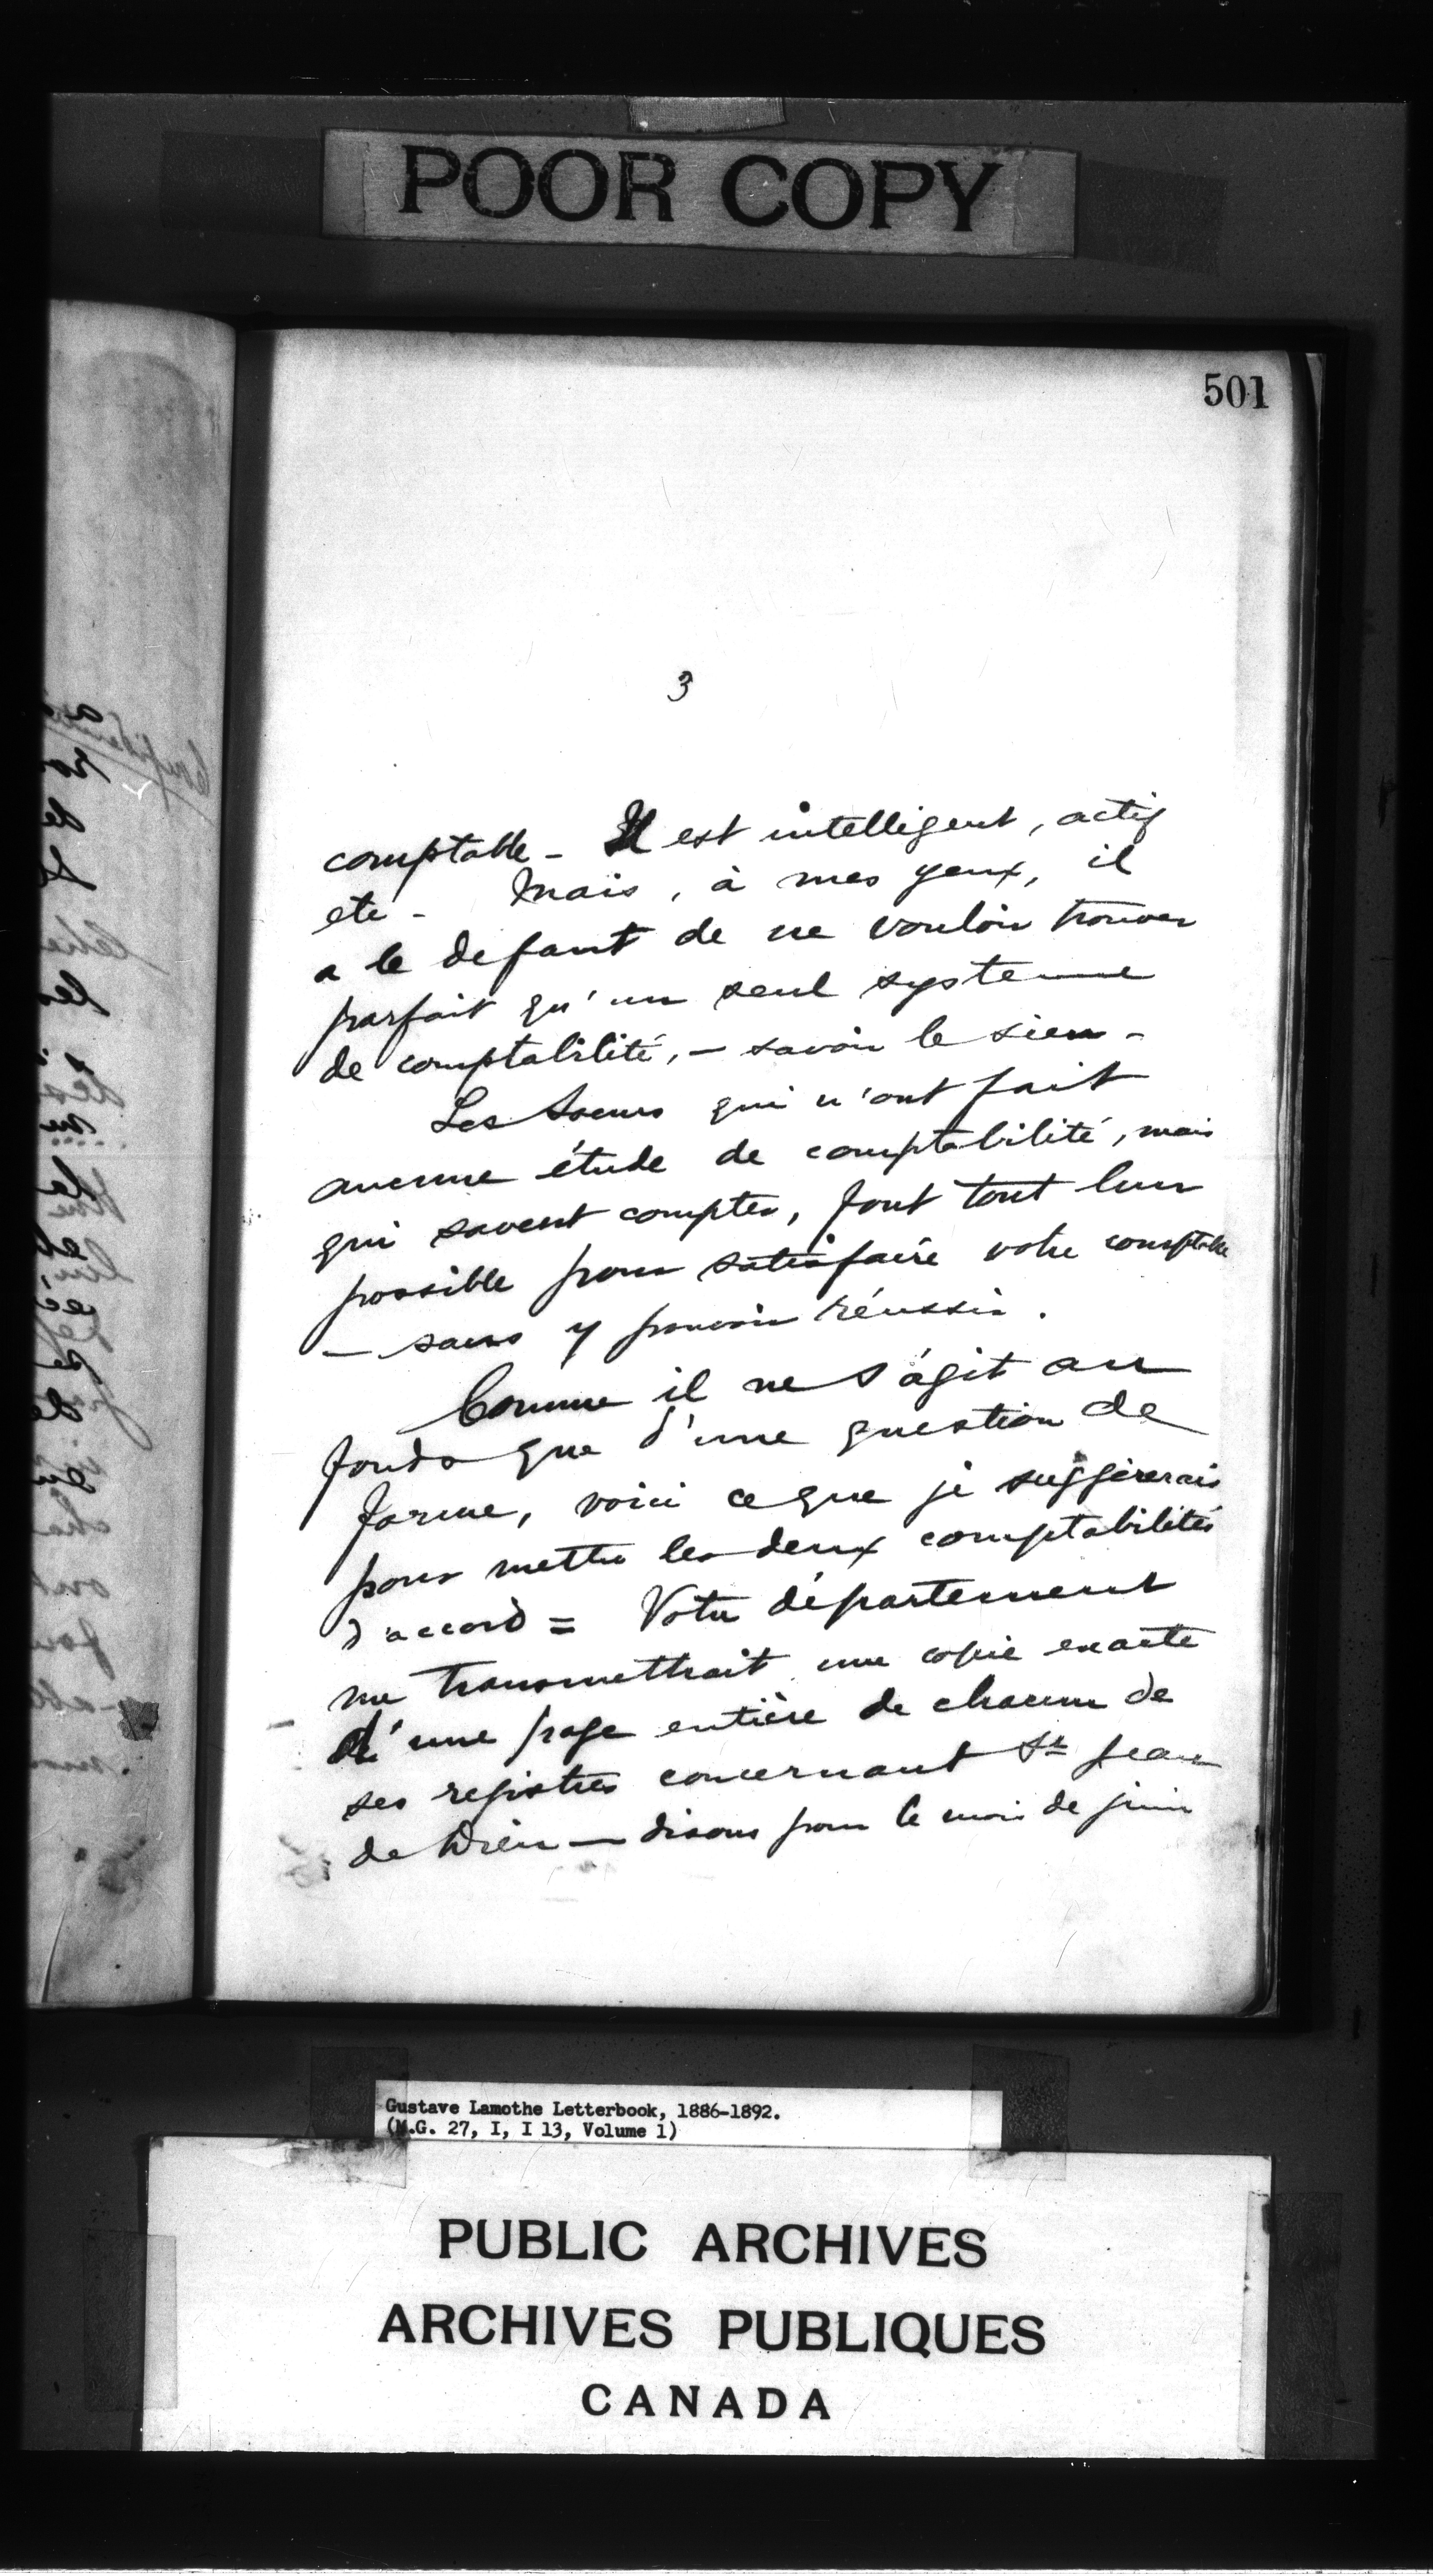 POOR COPY
501
3
comptable - Il est intelligent, actif
etc - Mais, à mes yeux, il
a le defaut de ne vouloir trouver
parfait qu'un seul systeme
de comptabilité, - savoir le sien -
Les Soeurs qui n'ont fait
aucune étude de comptabilité, mais
qui savent compter, font tout leur
possible pour satisfaire votre comptable
- sans y pouvoir réussir.
Comme il ne s'agit au
fonds que d'une question de
forme, voici ce que je suggèrerais
pour mettre les deux comptabilités
d'accord = Votre département
me transmettrait une copie exacte
d'une page entière de chacun de
ses registres concernant St Jean
de Dieu - disons pour le mois de juin
Gustave Lamothe Letterbook, 1886-1892.
(M.G. 27, I, I 13, Volume 1)
PUBLIC ARCHIVES
ARCHIVES PUBLIQUES
CANADA